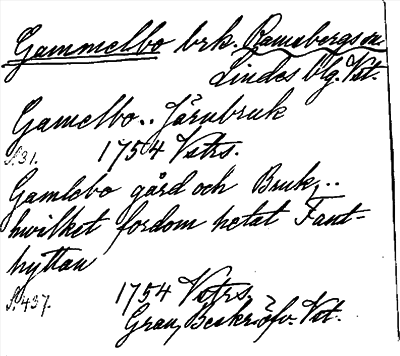 Gammelbo brk. Ramsbergs sn
Lindes blg. Vst.
Gamelbo.. Järnbruk
S. 31. 1754 Vstrs.
Gamlebo gård och Bruk,..
hwilket fordom hetat Fant-
hyttan
S. 437. 1754 Vstrs.
Grau, Beskrifv. Vst.